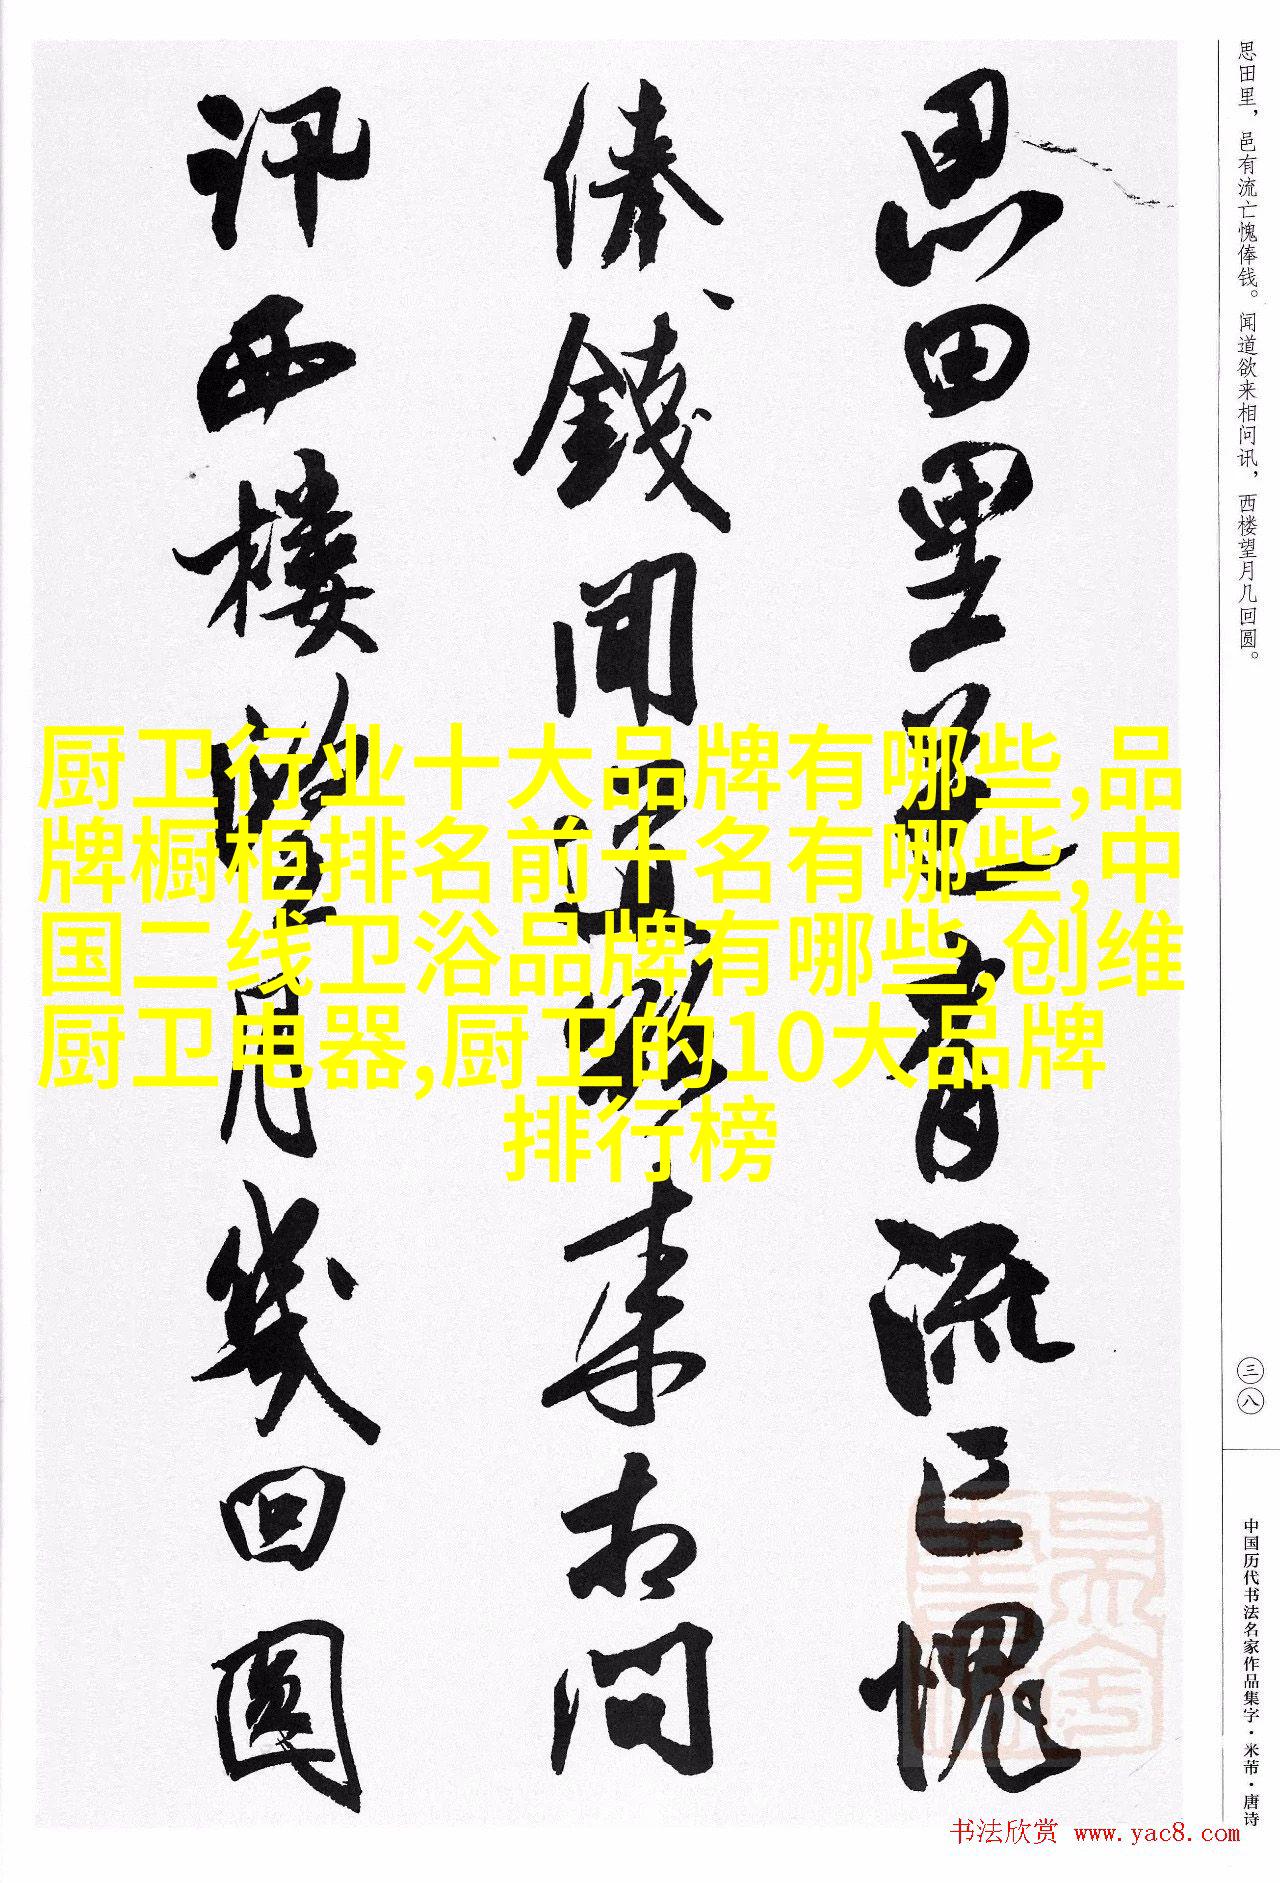 思田里邑有流亡愧
俸钱闻道欲来相问
讯西楼望月几回圆
思田里，邑有流亡愧俸钱。闻道欲来相问讯，西楼望月几回圆。
三八
中国历代书法名家作品集字·米芾·唐诗
厨卫行业十大品牌有哪些,品
牌橱柜排名前十名有哪些,中
国二线卫浴品牌有哪些,创维
厨卫电器,厨卫的10大品牌
排行榜
书法欣赏 www.yac8.com